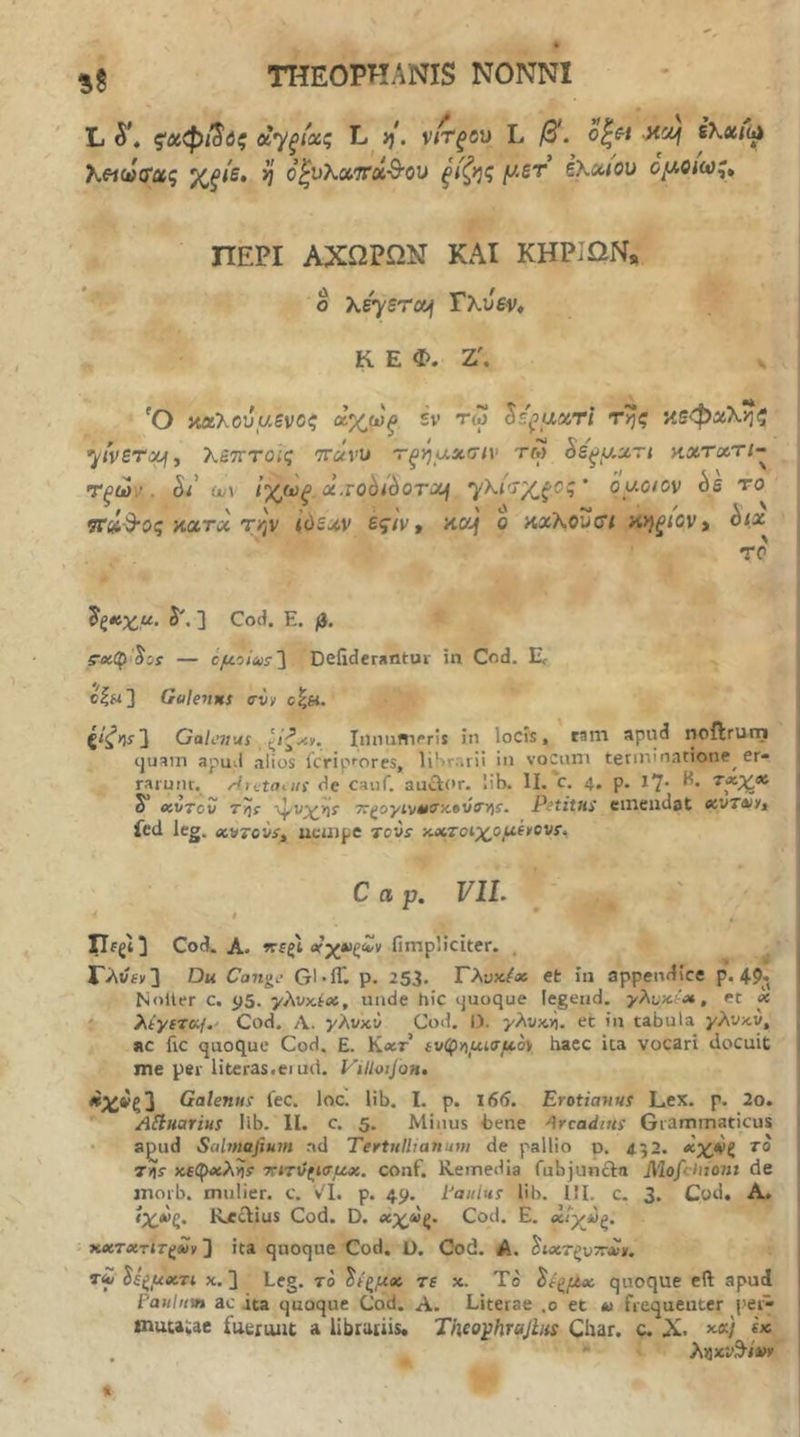 38 THEOPHANIS NONNI
L δ'. ςαφίδος ἀγρίας L η'. νίτρου L β'. ὄξει καὶ ἐλαίῳ
λειώσας χρῖε. ἢ ὀξυλαπάθου ῥίζης μετ' ἐλαίου ὁμοίως.
ΠΕΡΙ ΑΧΩΡΩΝ ΚΑΙ ΚΗΡΙΩΝ,
ὃ λέγεται Γλύεν.
ΚΕΦ. Ζ'.
Ὁ καλούμενος ἀχὼρ ἐν τῷ δέρματι τῆς κεφαλῆς
γίνεται, λεπτοῖς πάνυ τρήμασιν τῷ δέρματι κατατι-
τρῶν. δι' ὧν ἰχὼρ ἀποδίδοται γλίσχρος· ὅμοιον δὲ τὸ
πάθος κατὰ τὴν ἰδέαν ἐςὶν, καὶ ὃ καλοῦσι κηρίον, διὰ
τὸ
δραχμ. δ'.] Cod. E. β.
ςαφίδος — ὁμοίως] Desiderantur in Cod. E.
ὄξει] Galenus σὺν ὄξει.
ῥίζης] Galenus ῥίζαν. Innumeris in locis, tam apud nostrum
quam apud alios scriptores, librarii in vocum terminatione er-
rarunt. Aretaeus de caus. auctor. lib. II. c. 4. p. 17. B. τάχα
δ' αὐτοῦ τῆς ψυχῆς προγινωσκούσης. Petitus emendat αὐτῶν,
sed leg. αὐτοὺς, nempe τοὺς κατοιχομένους.
Cap. VII.
Περὶ] Cod. A. περὶ ἀχωρῶν simpliciter.
Γλύεν] Du Cange Gl. ff. p. 253. Γλυκέα et in appendice p. 49.
Nolter c. 95. γλυκέα, unde hic quoque legend. γλυκέα, et ἃ
λέγεται. Cod. A. γλυκὺ Cod. D. γλυκή. et in tabula γλυκύ,
ac sic quoque Cod. E. Κατ' εὐφημισμὸν haec ita vocari docuit
me per literas.eiud. Villoison.
ἀχὼρ] Galenus sec. loc. lib. I. p. 166. Erotianus Lex. p. 20.
Actuarius lib. II. c. 5. Minus bene Arcadius Grammaticus
apud Salmasium ad Tertullianum de pallio p. 432. ἀχὼρ τὸ
τῆς κεφαλῆς πιτύρισμα. conf. Remedia subjuncta Moschioni de
morb. mulier. c. VI. p. 49. Paulus lib. III. c. 3. Cod. A.
ἰχώρ. Rectius Cod. D. ἀχώρ. Cod. E. αἰχώρ.
κατατιτρῶν] ita quoque Cod. D. Cod. A. διατρυπῶν.
τῷ δέρματι κ.] Leg. τὸ δέρμα τε κ. Τὸ δέρμα quoque est apud
Paulum ac ita quoque Cod. A. Literae ,o et ω frequenter per-
mutatae fuerunt a librariis. Theophrastus Char. c. X. καὶ ἐκ
ληκυθίων